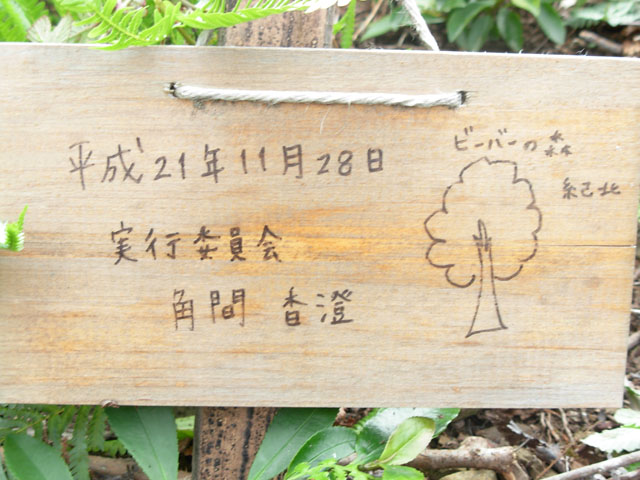 平成21年11月28日
実行委員会
角間 香澄
ビーバーの森
紀北